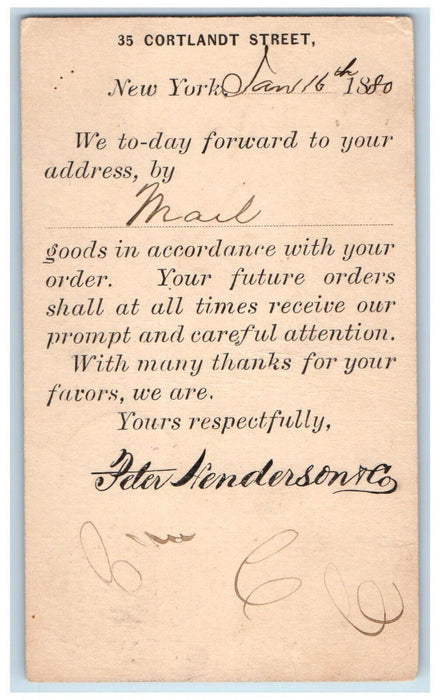 35 CORTLANDT STREET,
New York, Jan 16th 1880
We to-day forward to your
address, by
Mail
goods in accordance with your
order. Your future orders
shall at all times receive our
prompt and careful attention.
With many thanks for your
favors, we are.
Yours respectfully,
Peter Henderson & Co